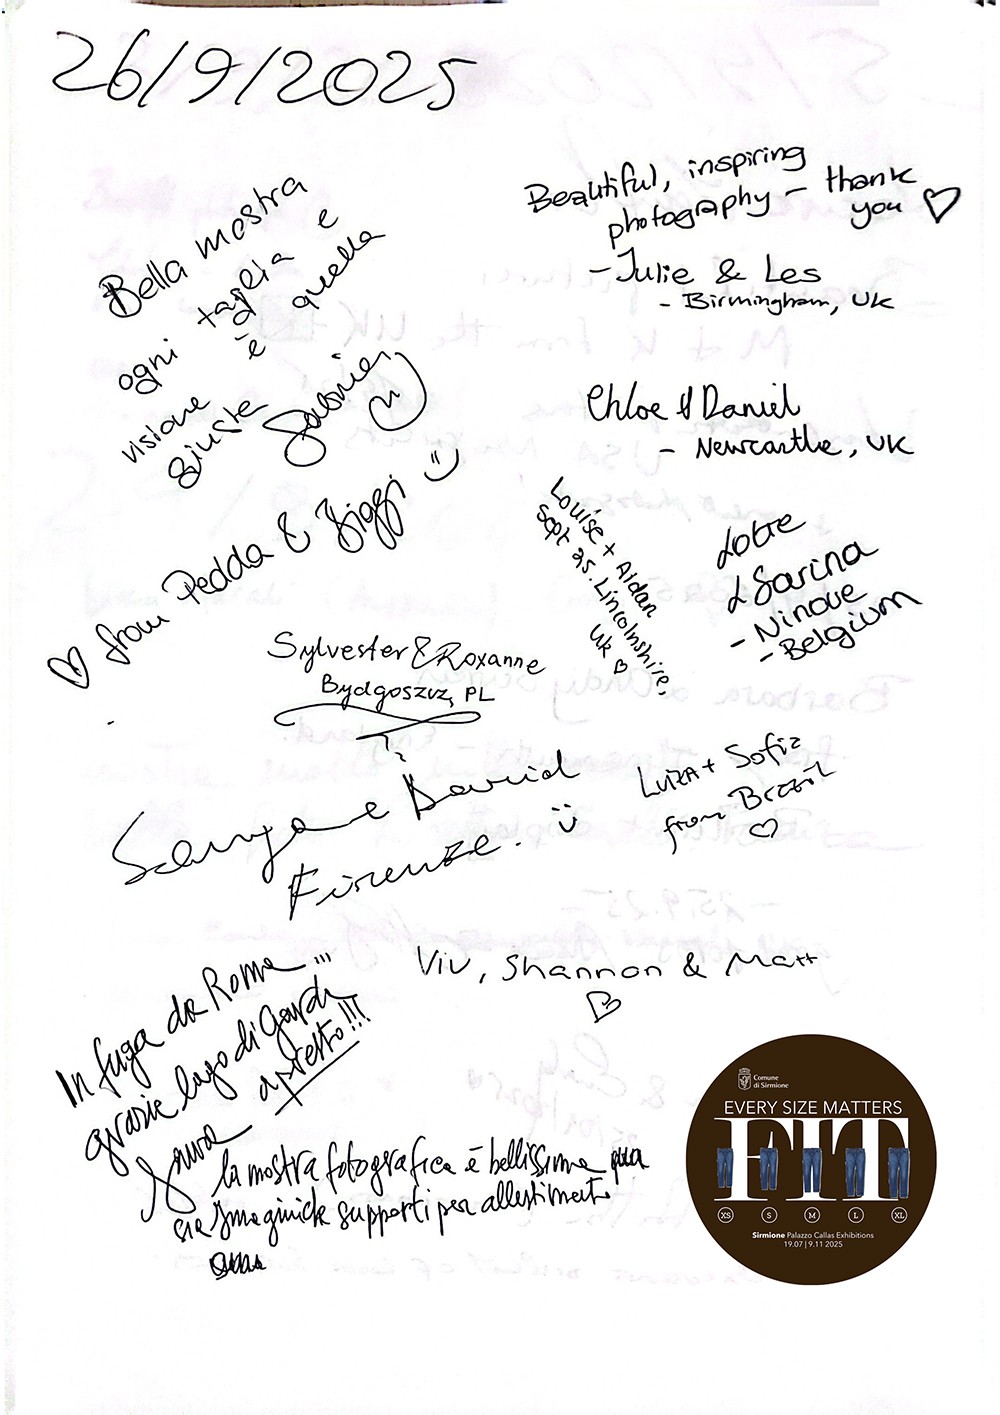 26/9/2025
Bella mostra
ogni taglia e
visione è quella
giusta
from Pedda &
Beautiful, inspiring
photography – thank
you ♡
- Julie & Les
- Birmingham, UK
Chloe & Daniel
- Newcastle, UK
Louise + Aidan
Sept 25. Lincolnshire,
UK ♡
Lotte
& Sarina
- Ninove
- Belgium
Sylvester & Roxanne
Bydgoszcz, PL
David
Firenze. :)
Luiza + Sofia
from Brazil
♡
Viv, Shannon & Matt
In fuga da Roma ...
grazie lago di Garda
a presto!!!
la mostra fotografica è bellissima
sia supporti per allestimento
Comune
di Sirmione
EVERY SIZE MATTERS
FIT
XS S M L XL
Sirmione Palazzo Callas Exhibitions
19.07 | 9.11 2025